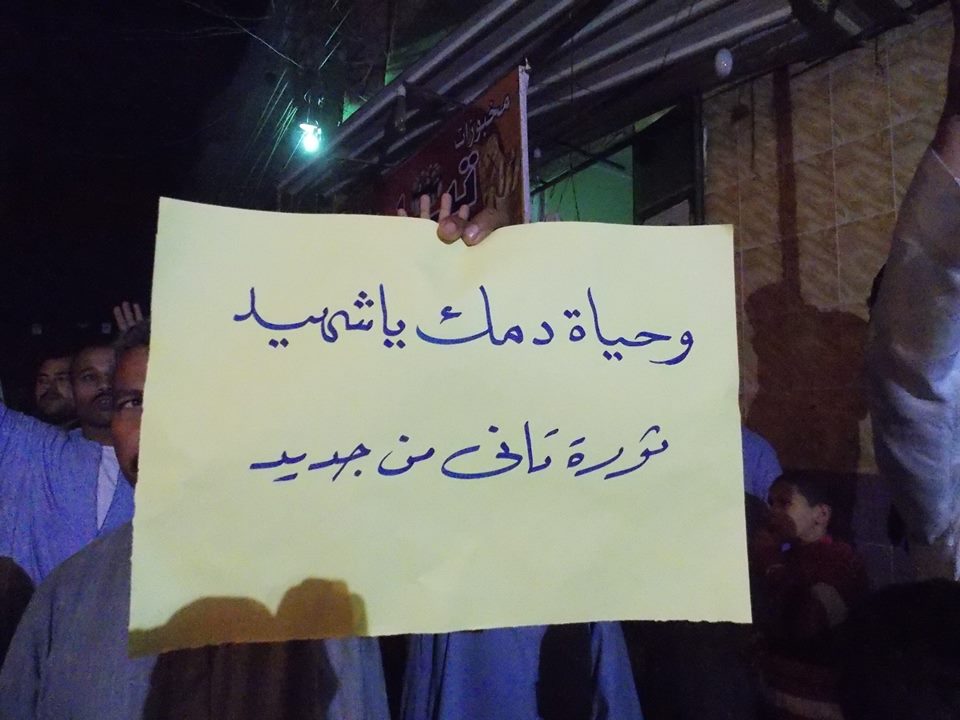 مخبوزات
وحياة دمك ياشهيد
ثورة تانى من جديد